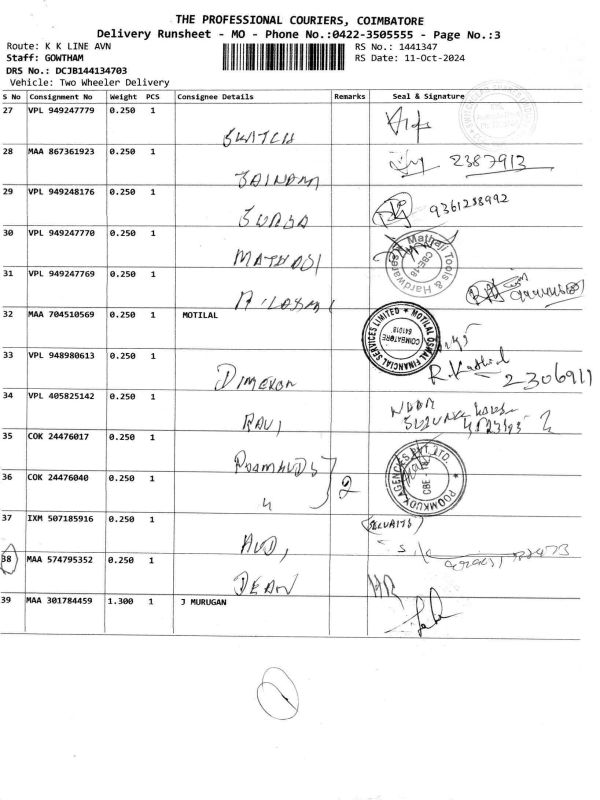 THE PROFESSIONAL COURIERS, COIMBATORE
Delivery Runsheet - MO - Phone No.:0422-3505555 - Page No.:3
Route: K K LINE AVN RS No.: 1441347
Staff: GOWTHAM RS Date: 11-Oct-2024
DRS No.: DCJB144134703
Vehicle: Two Wheeler Delivery
S No Consignment No Weight PCS Consignee Details Remarks Seal & Signature
27 VPL 949247779 0.250 1
28 MAA 867361923 0.250 1
2387913
SAINDM
29 VPL 949248176 0.250 1
9361258992
SURYA
30 VPL 949247770 0.250 1
Mathaji Tools & Hardwares CBE-18
MATHAJI
31 VPL 949247769 0.250 1
32 MAA 704510569 0.250 1 MOTILAL
MOTILAL OSWAL FINANCIAL SERVICES LIMITED COIMBATORE 641018
33 VPL 948980613 0.250 1
DIMENON 2306911
34 VPL 405825142 0.250 1
RAVI
35 COK 24476017 0.250 1
POOMKUDY
POOMKUDY AGENCIES PVT. LTD. CBE - 18
36 COK 24476040 0.250 1
2
37 IXM 507185916 0.250 1
(SECURITY)
38 MAA 574795352 0.250 1
DEAN
39 MAA 301784459 1.300 1 J MURUGAN